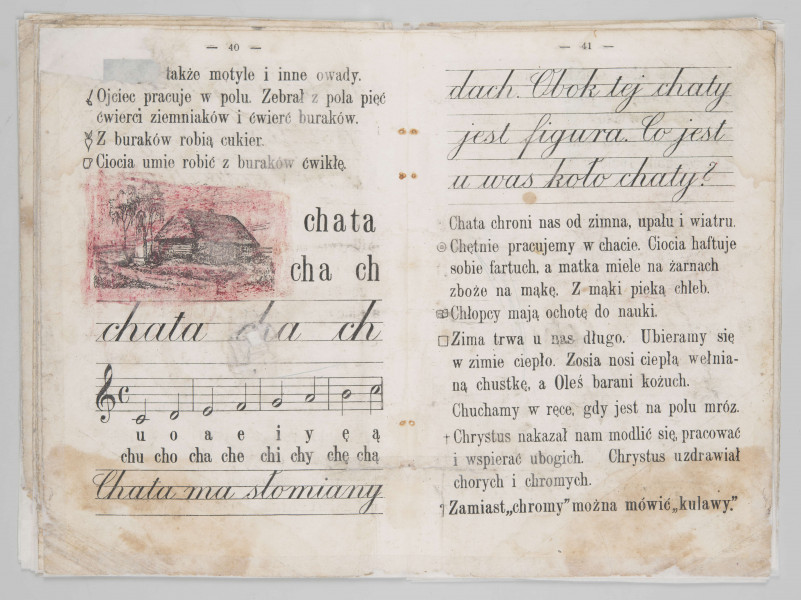 — 40 —
także motyle i inne owady.
Ojciec pracuje w polu. Zebrał z pola pięć
ćwierci ziemniaków i ćwierć buraków.
Z buraków robią cukier.
Ciocia umie robić z buraków ćwikłę.
chata
cha ch
chata cha ch
u o a e i y ę ą
chu cho cha che chi chy chę chą
Chata ma słomiany
— 41 —
dach. Obok tej chaty
jest figura. Co jest
u was koło chaty?
Chata chroni nas od zimna, upału i wiatru.
Chętnie pracujemy w chacie. Ciocia haftuje
sobie fartuch, a matka miele na żarnach
zboże na mąkę. Z mąki pieką chleb.
Chłopcy mają ochotę do nauki.
Zima trwa u nas długo. Ubieramy się
w zimie ciepło. Zosia nosi ciepłą wełnia-
ną chustkę, a Oleś barani kożuch.
Chuchamy w ręce, gdy jest na polu mróz.
Chrystus nakazał nam modlić się, pracować
i wspierać ubogich. Chrystus uzdrawiał
chorych i chromych.
Zamiast „chromy” można mówić „kulawy.”